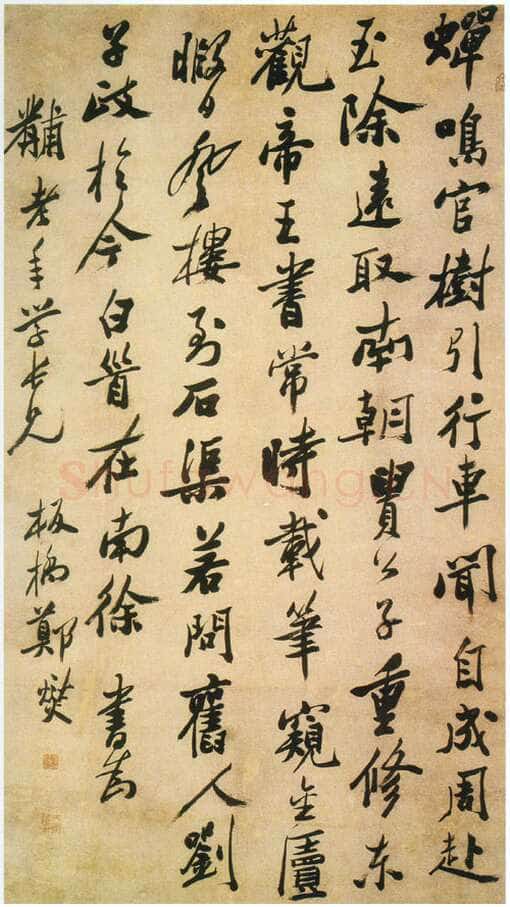 蟬鳴官樹引行車聞自成周赴
玉除遠取南朝貴公子重修东
觀帝王書常時載筆窺金匵
暇日登樓到石渠若問舊人劉
子政於今白首在南徐 書為
黼老年学长兄 板橋鄭燮
Shufawang.CN